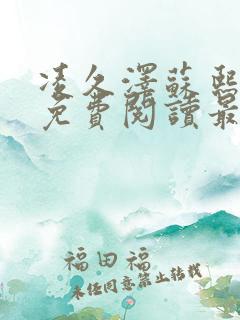 凌久澤蘇熙
免費閱讀最
福田福
未經同意禁止轉載